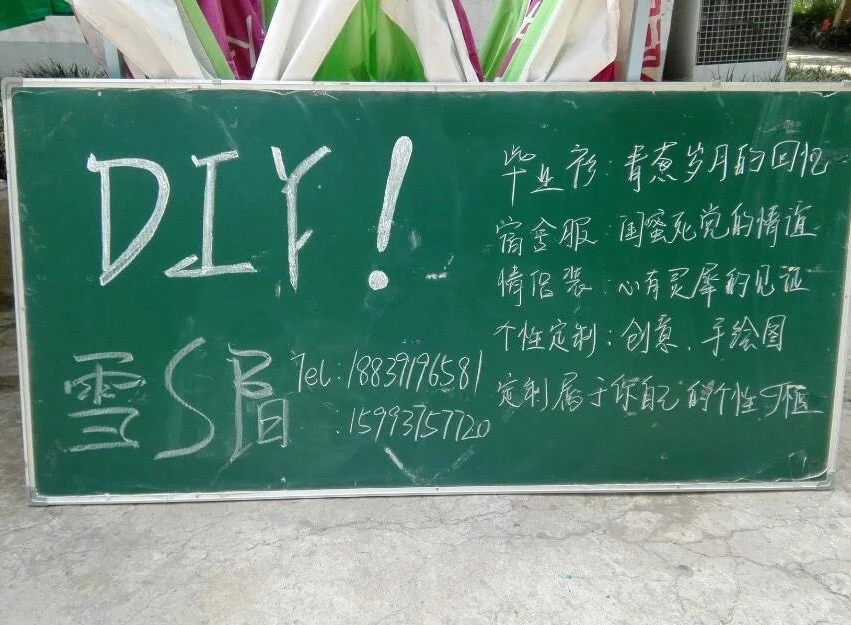 DIY!
雪S眉
Tel:18839196581
:15993757720
毕业衫:青葱岁月的回忆
宿舍服:闺蜜死党的情谊
情侣装:心有灵犀的见证
个性定制:创意、手绘图
定制属于你自己的个性